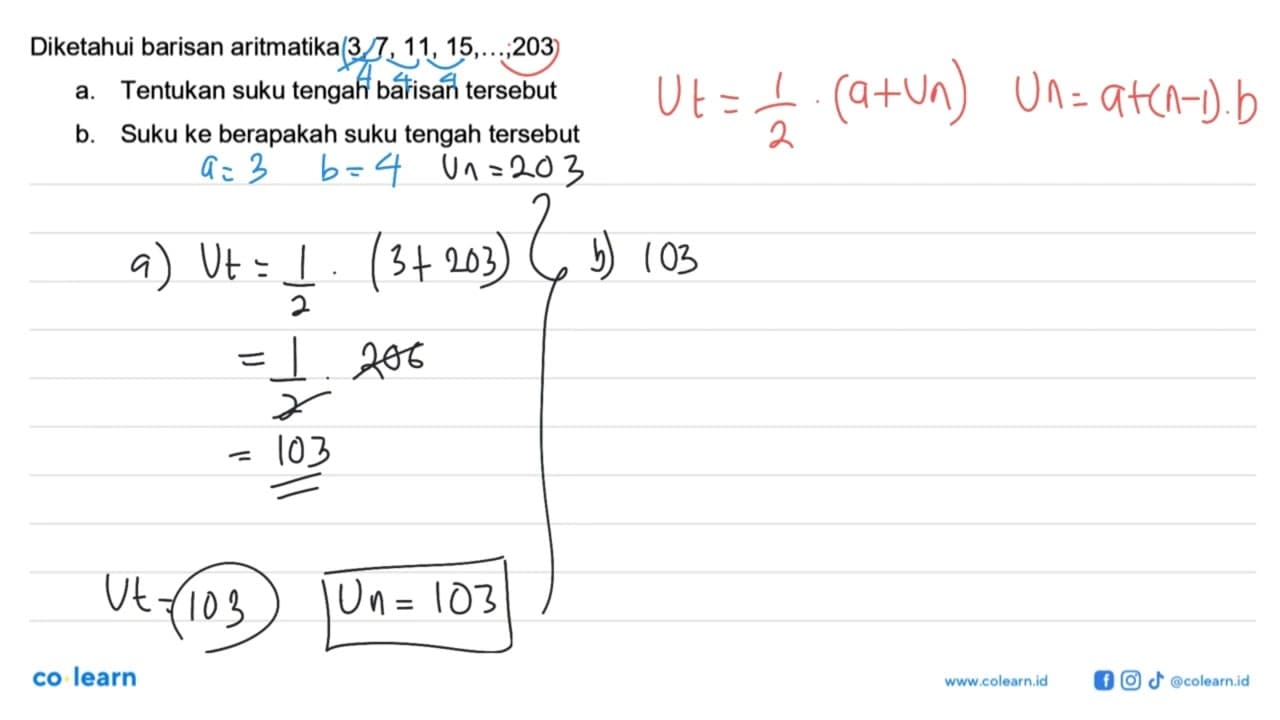 Diketahui barisan aritmatika(3, 7, 11, 15,...,203)
4 4 4
a. Tentukan suku tengah barisan tersebut
b. Suku ke berapakah suku tengah tersebut
Ut = 1/2 . (a+Un) Un = a+(n-1).b
a = 3 b = 4 Un = 203
a) Ut = 1/2 . (3+203)
= 1/2 . 206
= 103
Ut = 103 Un = 103
b) 103
co learn
www.colearn.id @colearn.id